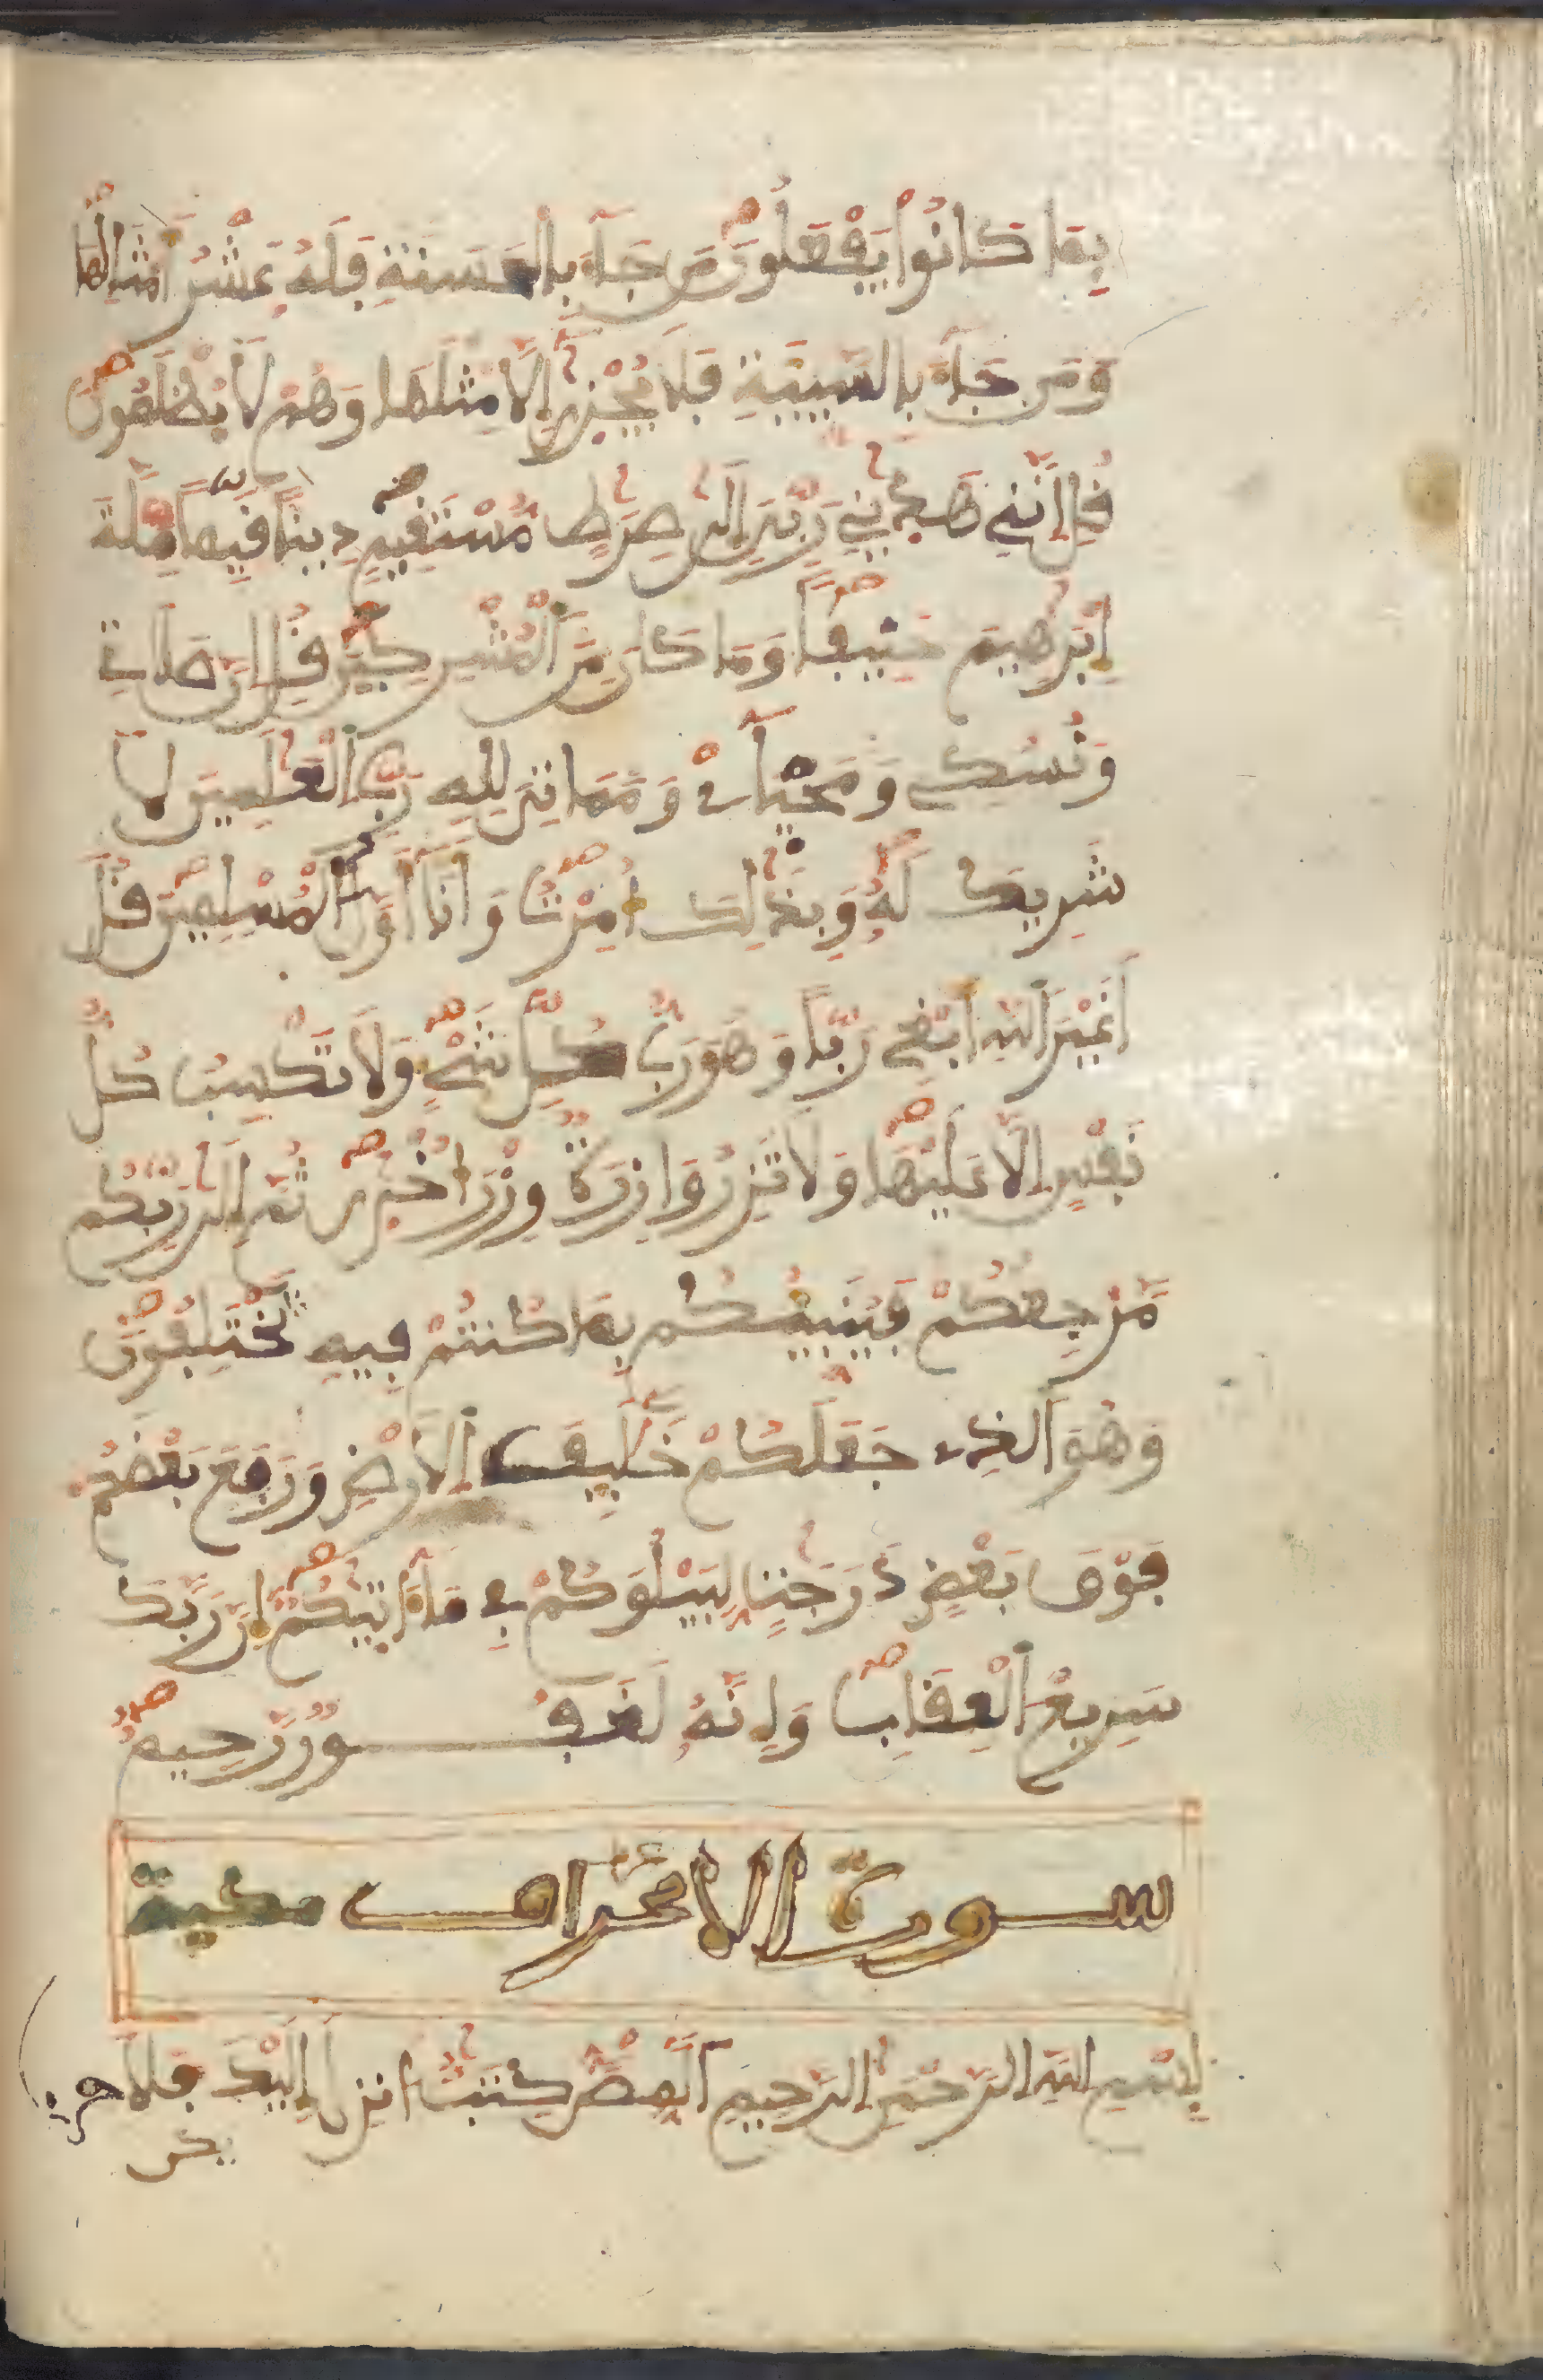 بِمَا كَانُواْ يَفْعَلُونَ مَن جَآءَ بِالْحَسَنَةِ فَلَهُۥ عَشْرُ أَمْثَالِهَا
وَمَن جَآءَ بِالسَّيِّئَةِ فَلَا يُجْزَىٰٓ إِلَّا مِثْلَهَا وَهُمْ لَا يُظْلَمُونَ
قُلْ إِنَّنِي هَدَىٰنِي رَبِّيَ إِلَىٰ صِرَٰطٍ مُّسْتَقِيمٍ دِيناً قَيِّماً مِّلَّةَ
إِبْرَٰهِيمَ حَنِيفاً وَمَا كَانَ مِنَ ٱلْمُشْرِكِينَ قُلْ إِنَّ صَلَاتِي
وَنُسُكِي وَمَحْيَآيْ وَمَمَاتِيَ لِلهِ رَبِّ ٱلْعَٰلَمِينَ لَا
شَرِيكَ لَهُۥ وَبِذَٰلِكَ أُمِرْتُ وَأَنَآ أَوَّلُ ٱلْمُسْلِمِينَ قُلْ
أَغَيْرَ ٱللَّهِ أَبْغِي رَبّاً وَهُوَ رَبُّ كُلِّ شَيْءٍ وَلَا تَكْسِبُ كُلُّ
نَفْسٍ إِلَّا عَلَيْهَا وَلَا تَزِرُ وَازِرَةٌ وِزْرَ أُخْرَىٰ ثُمَّ إِلَىٰ رَبِّكُم
مَّرْجِعُكُمْ فَيُنَبِّئُكُم بِمَا كُنتُمْ فِيهِ تَخْتَلِفُونَ
وَهُوَ ٱلَّذِي جَعَلَكُمْ خَلَٰٓئِفَ ٱلْأَرْضِ وَرَفَعَ بَعْضَكُمْ
فَوْقَ بَعْضٍ دَرَجَٰتٍ لِّيَبْلُوَكُمْ فِي مَآ ءَاتَىٰكُمْ إِنَّ رَبَّكَ
سَرِيعُ ٱلْعِقَابِ وَإِنَّهُۥ لَغَفُورٌ رَّحِيمٌ
سورة الاعراف مكية
بِسْمِ اللَّهِ الرَّحْمَٰنِ الرَّحِيمِ الٓمٓصٓ كِتَٰبٌ أُنزِلَ إِلَيْكَ فَلَا
يكن